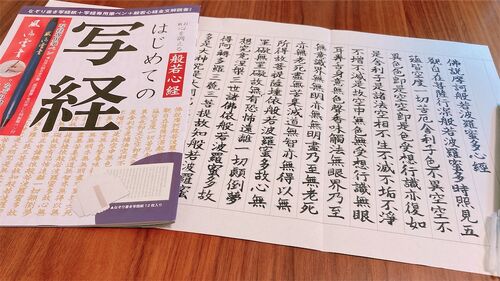 なぞり書き写経紙＋写経専用筆ペン＋般若心経全文解説書!
般若心経
はじめての
写経
▲なぞり書き写経紙12枚入り
佛説摩訶般若波羅蜜多心経
観自在菩薩行深般若波羅蜜多時照見五
蘊皆空度一切苦厄舎利子色不異空空不
異色色即是空空即是色受想行識亦復如
是舎利子是諸法空相不生不滅不垢不浄
不増不減是故空中無色無受想行識無眼
耳鼻舌身意無色聲香味觸法無眼界乃至
無意識界無無明亦無無明盡乃至無老死
亦無老死盡無苦集滅道無智亦無得以無
所得故菩提薩埵依般若波羅蜜多故心無
罣礙無罣礙故無有恐怖遠離一切顛倒夢
想究竟涅槃三世諸佛依般若波羅蜜多故
得阿耨多羅三藐三菩提故知般若波羅蜜
多是大神咒是